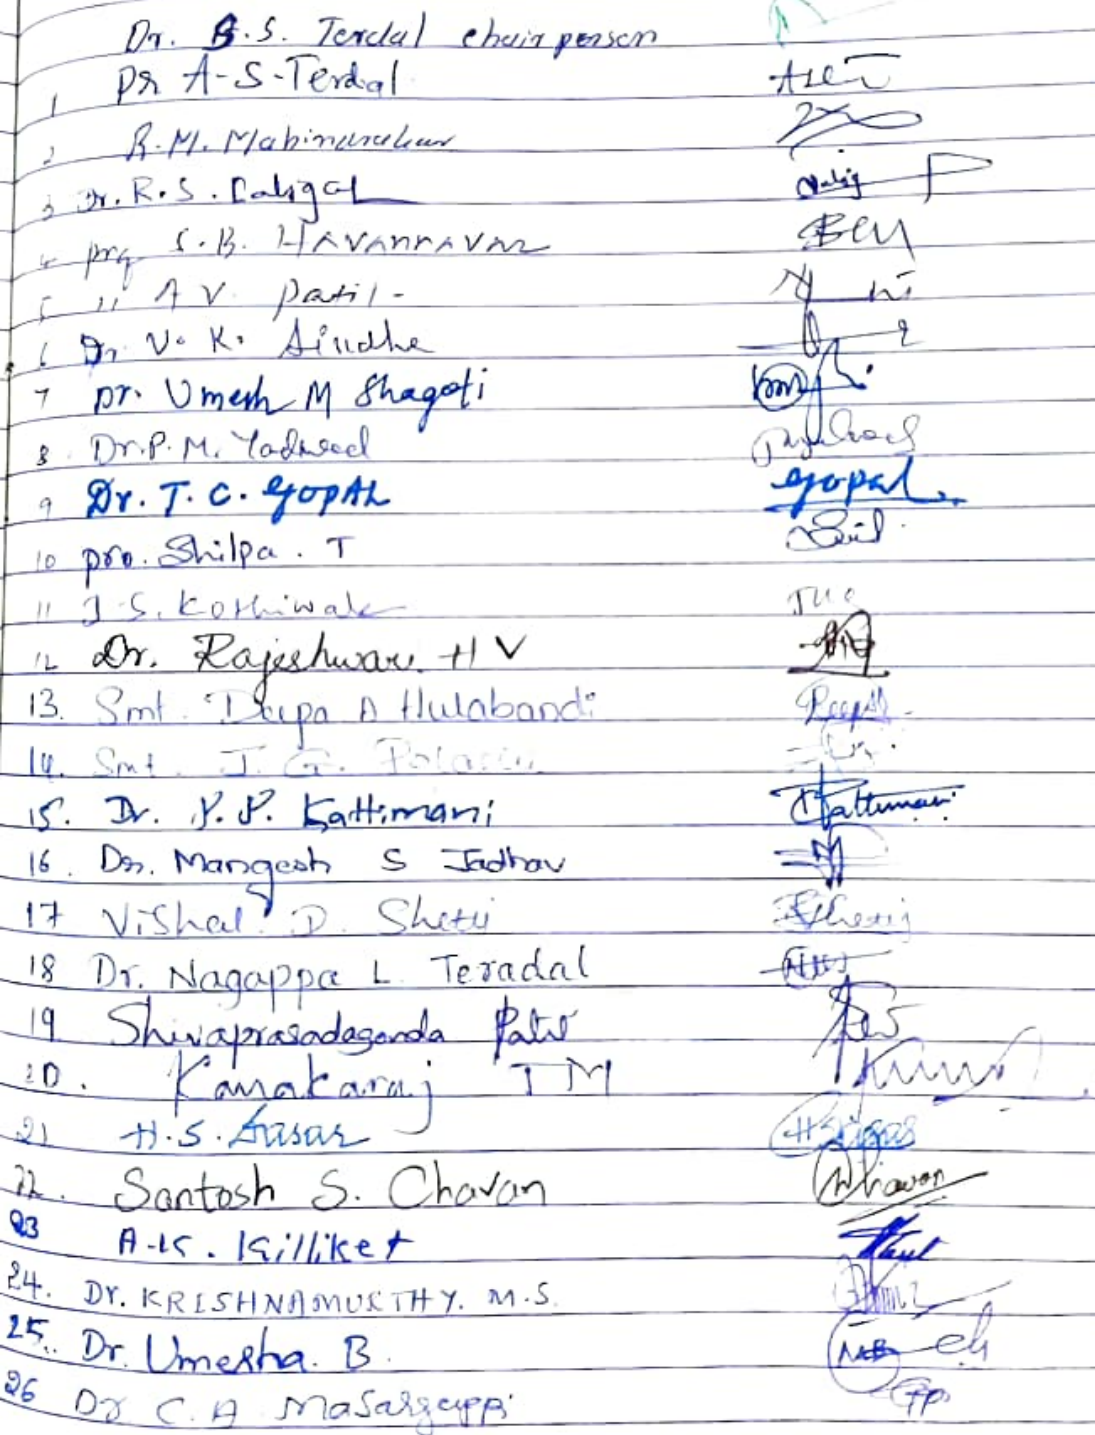 Dr. B.S. Terdal chairperson
1 Dr A-S-Terdal
2 R.M.
3 Dr. R.S.
4 S.B. HAVANNAVAR
5 " A V. Patil -
6 Dr V. K. Aindhe
7 Dr. Umesh M Shagoti
8 Dr. P. M. Yadwad
9 Dr. T. C. GOPAL gopal
10 pro. Shilpa. T
11 J.S. Kothiwale
12 Dr. Rajeshwari H V
13. Smt. Deepa A Hulabandi
14. Smt. J. G.
15. Dr. P. P. Kattimani Kattimani
16. Dr. Mangesh S Jadhav
17 Vishal D. Shetti
18 Dr. Nagappa L Teradal
19 Shivaprasadagonda Patil
20. Kanakaraj T M
21 H.S.
22. Santosh S. Chavan
23 A.K. Killiket
24. Dr. KRISHNAMURTHY. M.S.
25. Dr. Umesha. B.
26 Dr C. A